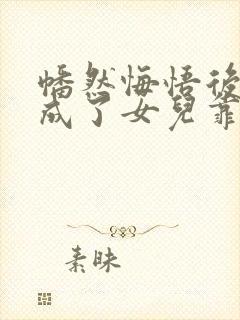 幡然悔悟後
成了女兒靠
素昧